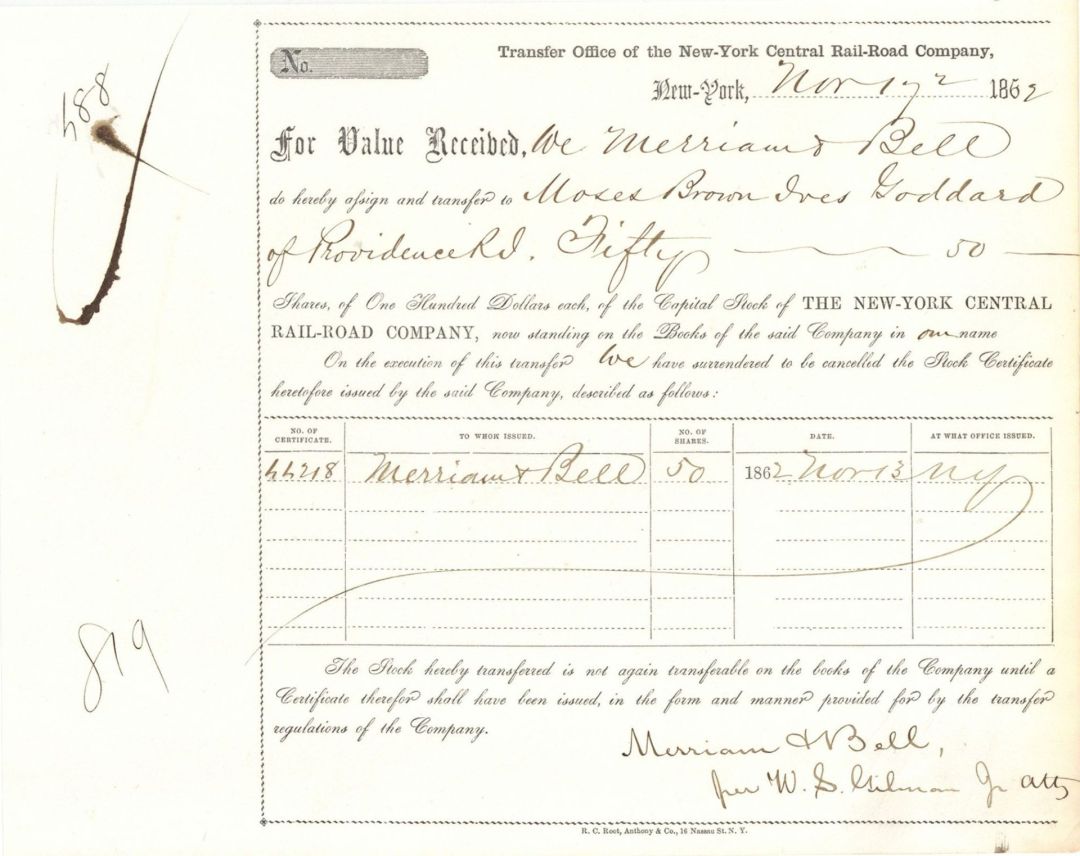 No.
Transfer Office of the New-York Central Rail-Road Company,
New-York, Nov 17 1862
For Value Received, We Merriam & Bell
do hereby assign and transfer to Moses Brown Ives Goddard
of Providence R.I. Fifty 50
Shares, of One Hundred Dollars each, of the Capital Stock of THE NEW-YORK CENTRAL
RAIL-ROAD COMPANY, now standing on the Books of the said Company in our name
On the execution of this transfer We have surrendered to be cancelled the Stock Certificate
heretofore issued by the said Company, described as follows:
NO. OF CERTIFICATE. TO WHOM ISSUED. NO. OF SHARES. DATE. AT WHAT OFFICE ISSUED.
44218 Merriam & Bell 50 1862 Nov 13 NY
The Stock hereby transferred is not again transferable on the books of the Company until a
Certificate therefor shall have been issued, in the form and manner provided for by the transfer
regulations of the Company.
Merriam & Bell,
per W. S. Gilman Jr atty
R. C. Root, Anthony & Co., 16 Nassau St. N. Y.
819